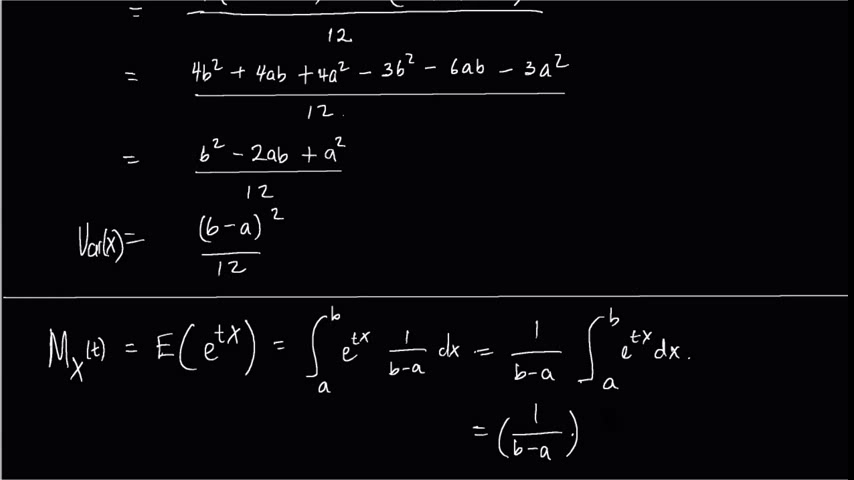 =
12
= 4b² + 4ab + 4a² - 3b² - 6ab - 3a²
12.
= b² - 2ab + a²
12
Var(x) = (b-a)²
12
M_X(t) = E(e^{tX}) = ∫_a^b e^{tx} 1/(b-a) dx = 1/(b-a) ∫_a^b e^{tx} dx.
= (1/(b-a)) ·